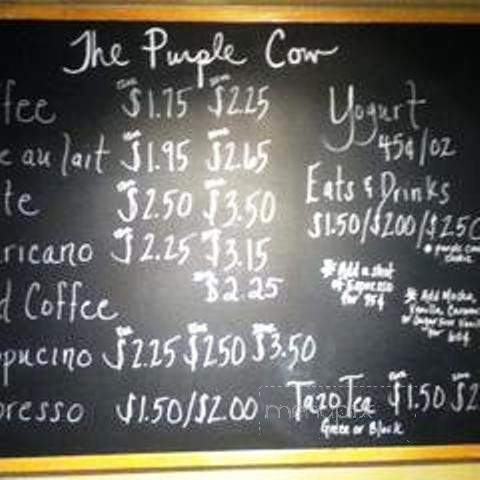 The Purple Cow
fee $1.75 $2.25
e au lait $1.95 $2.65
te $2.50 $3.50
ricano $2.25 $3.15
d Coffee $2.25
pucino $2.25 $2.50 $3.50
presso $1.50/$2.00
Yogurt
45¢/oz
Eats & Drinks
$1.50/$2.00/$2.50
* Add a shot
of Espresso
for 75¢
* Add Mocha,
Vanilla, Caramel
or Sugar Free Vanilla
for
Tazo Tea $1.50 $2
Green or Black
menupix